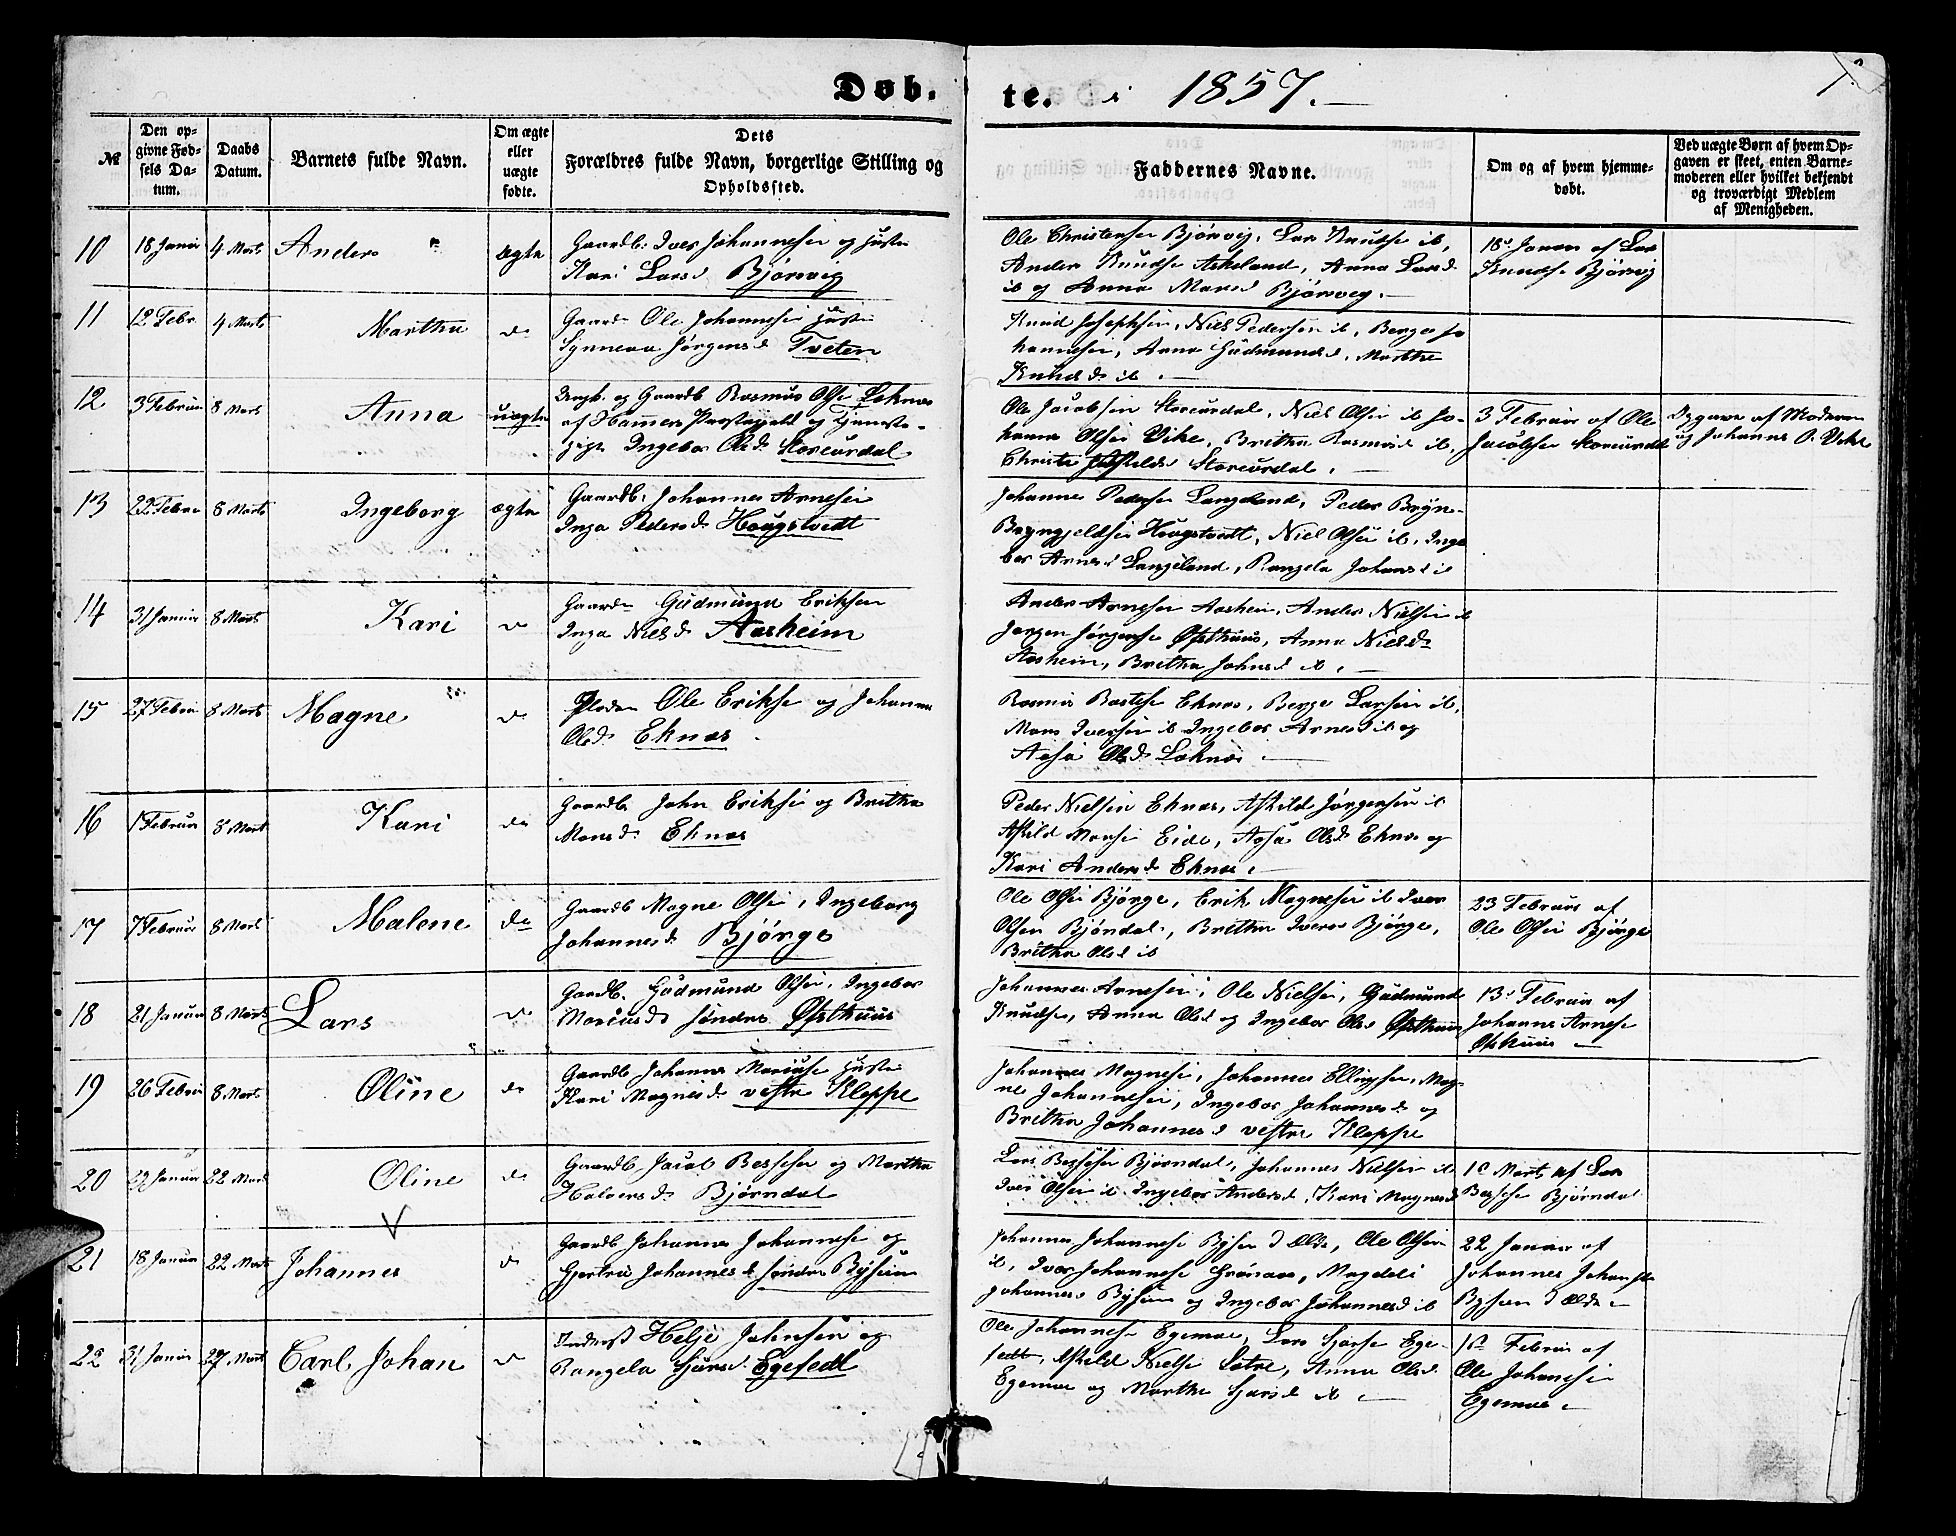 Døb-
te. i 1857.
№
Den op-
givne Fød-
sels Da-
tum.
Daabs
Datum.
Barnets fulde Navn.
Om ægte
eller
uægte
fødte.
Dets
Forældres fulde Navn, borgerlige Stilling og
Opholdssted.
Faddernes Navne.
Om og af hvem hjemme-
døbt.
Ved uægte Børn af hvem Op-
gaven er skeet, enten Barne-
moderen eller hvilket bekjendt
og troværdigt Medlem
af Menigheden.
10 18 Januar 4 Marts Anders ægte
Gaardb. Iver Johannesen og Hustru
Kari Larsd. Bjørvig
Ole Christensen Bjørvig, Lars Knudsen ib,
Anders Knudse Askeland, Anna Larsd
ib og Anna Monsd Bjørvig.
18 Januar af Lars
Knudse Bjørvig
11 12 Febr. 4 Marts Martha do
Gaardb Ole Johannesen Hustru
Synneva Jørgensd Tveten
Knud Josephsen, Niels Pedersen ib, Berge Jo
hannesen, Anna Gudmundsd, Marthe
Knudsd ib.
12 3 Februar 8 Marts Anna uægte
Ungk. og Gaardb Rasmus Olsen Loknæs
af Hammers Præstegjeld og Tjeneste-
pige Ingebor Olsd. Storeurdal
Ole Jacobsen Storeurdal, Niels Olsen ib Jo-
hannes Olsen Vike, Britha Rasmusd ib,
Christi Askildsd Storeurdal.
3 Februar af Ole
Jacobsen Storeurdal
Opgave af Moderen
og Johannes O. Vike
13 22 Febru 8 Marts Ingeborg ægte
Gaardb. Johannes Arnesen
Inga Pedersd. Hougstvedt
Johannes Pedersen Langeland, Peder Bryn-
Bryngjeldsen Hougstvedt, Niels Olsen ib, Inge
bor Arnesd Langeland, Rangela Johansd ib
14 31 Januar 8 Marts Kari do
Gaardb Gudmund Eriksen
Inga Nielsd. Aasheim
Anders Arnesen Aasheim, Anders Nielsen ib
Jørgen Jørgensen Østhuus, Anna Nielsd
Aasheim, Britha Johnsd ib.
15 27 Febru 8 Marts Magne do
Ole Eriksen og Johanna
Olsd. Eknæs
Rasmus Eknæs, Berge Larsen ib,
Mons Iversen ib Ingebor Arnesd ib og
Aasa Olsd Loknæs.
16 1 Februar 8 Marts Kari do
Gaardb John Eriksen og Britha
Monsd. Eknæs
Peder Nielsen Eknæs, Askild Jørgensen ib
Askild Monsen Eide, Aasa Olsd Eknæs og
Kari Andersd Eknæs.
17 7 Februar 8 Marts Malene do
Gaardb Magne Olsen, Ingeborg
Johannesd. Bjørge
Ole Olsen Bjørge, Erik Magnesen ib Iver
Olsen Bjørndal, Britha Iversd Bjørge,
Britha Olsd ib
23 Februar af
Ole Olsen Bjørge
18 21 Januar 8 Marts Lars do
Gaardb. Gudmund Olsen, Ingebor
Mariusd. søndre Østhuus
Johannes Arnesen, Ole Nielsen, Gudmund
Knudsen, Anna Olsd og Ingebor Olsd Østhuus
13 Februar af
Johannes Arnesen
Østhuus
19 26 Febru 8 Marts Oline do
Gaardb Johannes Mariusen Hustru
Kari Magnesd. vestre Kleppe
Johannes Magnesen, Johannes Ellingsen, Mag
ne Johannesen, Ingebor Johannesd og
Britha Johannesd vestre Kleppe
20 29 Januar 22 Marts Oline do
Gaardb Jacob Bessesen og Martha
Halversd. Bjørndal
Lars Bessesen Bjørndal, Johannes Nielsen ib
Iver Olsen ib Ingebor Andersd, Kari Magnesd
10 Marts af Lars
Bessesen Bjørndal
21 18 Januar 22 Marts Johannes do
Gaardb Johannes Johannesen og
Gjertru Johannesd søndre Bysem
Johannes Johannesen Bysem d Ældre, Ole Olsen
ib, Iver Johannesen Grønaas, Magdeli
Johannesd Bysem og Ingebor Johannesd ib
22 Januar af
Johannes Johannese
Bysem d Ældre
22 31 Januar 27 Marts Carl Johan do
Inderst Helje Johnsen og
Rangela Sjursd. Egesedt
Ole Johannesen Egemoe, Lars Sjursen Ege-
sedt, Askild Nielsen Sætre, Anna Olsd
Egemoe og Marthe Sjursd ib
10 Februar af
Ole Johannesen
Egemoe